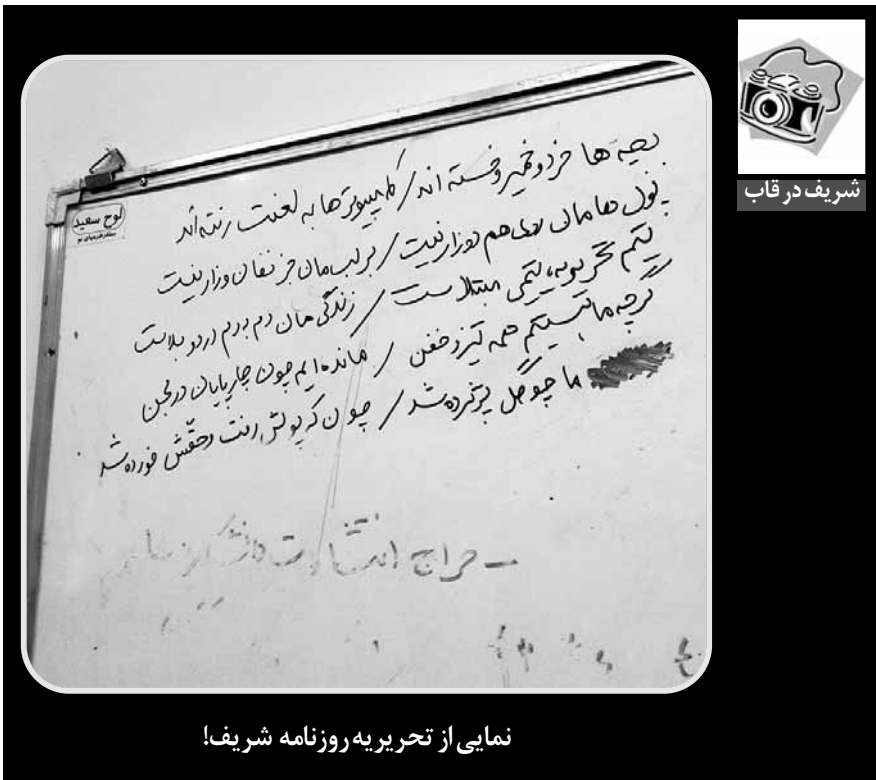 شریف در قاب
لوح سفید
بچه ها خرد و خمیر و خسته اند / کامپیوترها به لعنت رفته اند
پول هامان روی هم دوزار نیست / بر لب مان جز نغان وزار نیست
تیم تحریریه، تیمی مبتلاست / زندگی مان دم به دم درد و بلاست
گرچه ما تیمیم همه تیز و خفن / مانده ایم چون چارپایان در لجن
ما چو گل پژمرده شد / چون که پولش رفت و حقش خورده شد
- حراج انتشارات دانشگاه
نمایی از تحریریه روزنامه شریف!